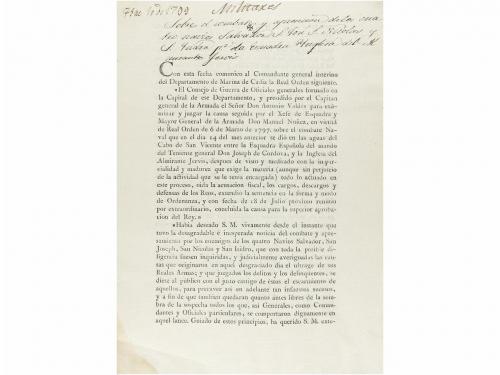 Militares
Sobre el combate y
navios Salvador, S. Josef, S. Nicolas y
S. Ysidro pr. la Escuadra Inglesa del Al
mirante Jervis
Con esta fecha comunico al Comandante general interino
del Departamento de Marina de Cadiz la Real Orden siguiente.
»El Consejo de Guerra de Oficiales generales formado en
la Capital de ese Departamento, y presidido por el Capitan
general de la Armada el Señor Don Antonio Valdés para exâ-
minar y juzgar la causa seguida por el Xefe de Esquadra y
Mayor General de la Armada Don Manuel Nuñez, en virtud
de Real Orden de 6 de Marzo de 1797, sobre el combate Na-
val que en el dia 14 del mes anterior se dió en las aguas del
Cabo de San Vicente entre la Esquadra Española del man-
do del Teniente general Don Joseph de Cordova, y la Inglesa del
Almirante Jervis, despues de visto y meditado con la impar-
cialidad y madurez que exîge la materia (aunque sin perjuicio
de la actividad que se le tenia encargada) todo lo actuado en
este proceso, oida la acusacion fiscal, los cargos, descargos y
defensas de los Reos, extendió la sentencia en la forma y modo
de Ordenanza, y con fecha de 18 de Julio próxîmo remitió
por extraordinario, concluida la causa para la superior aproba-
cion del Rey.»
»Habia deseado S. M. vivamente desde el instante que
tuvo la desagradable é inesperada noticia del combate y apre-
samiento por los enemigos de los quatro Navios Salvador, San
Joseph, San Nicolas y San Isidro, que con toda la posible di-
ligencia fuesen inquiridas, y judicialmente averiguadas las cau-
sas que originaron en aquel desgraciado dia el ultrage de sus
Reales Armas; y que juzgados los delitos y los delinqüentes, se
diese al público con el justo castigo de éstos el escarmiento de
aquellos, para precaver asi en adelante tan infaustos sucesos,
y á fin de que tambien quedaran quanto antes libres de la som-
bra de la sospecha todos los que, asi Generales, como Coman-
dantes y Oficiales particulares, se comportaron dignamente en
aquel lance. Guiado de estos principios, ha querido S. M. ente-